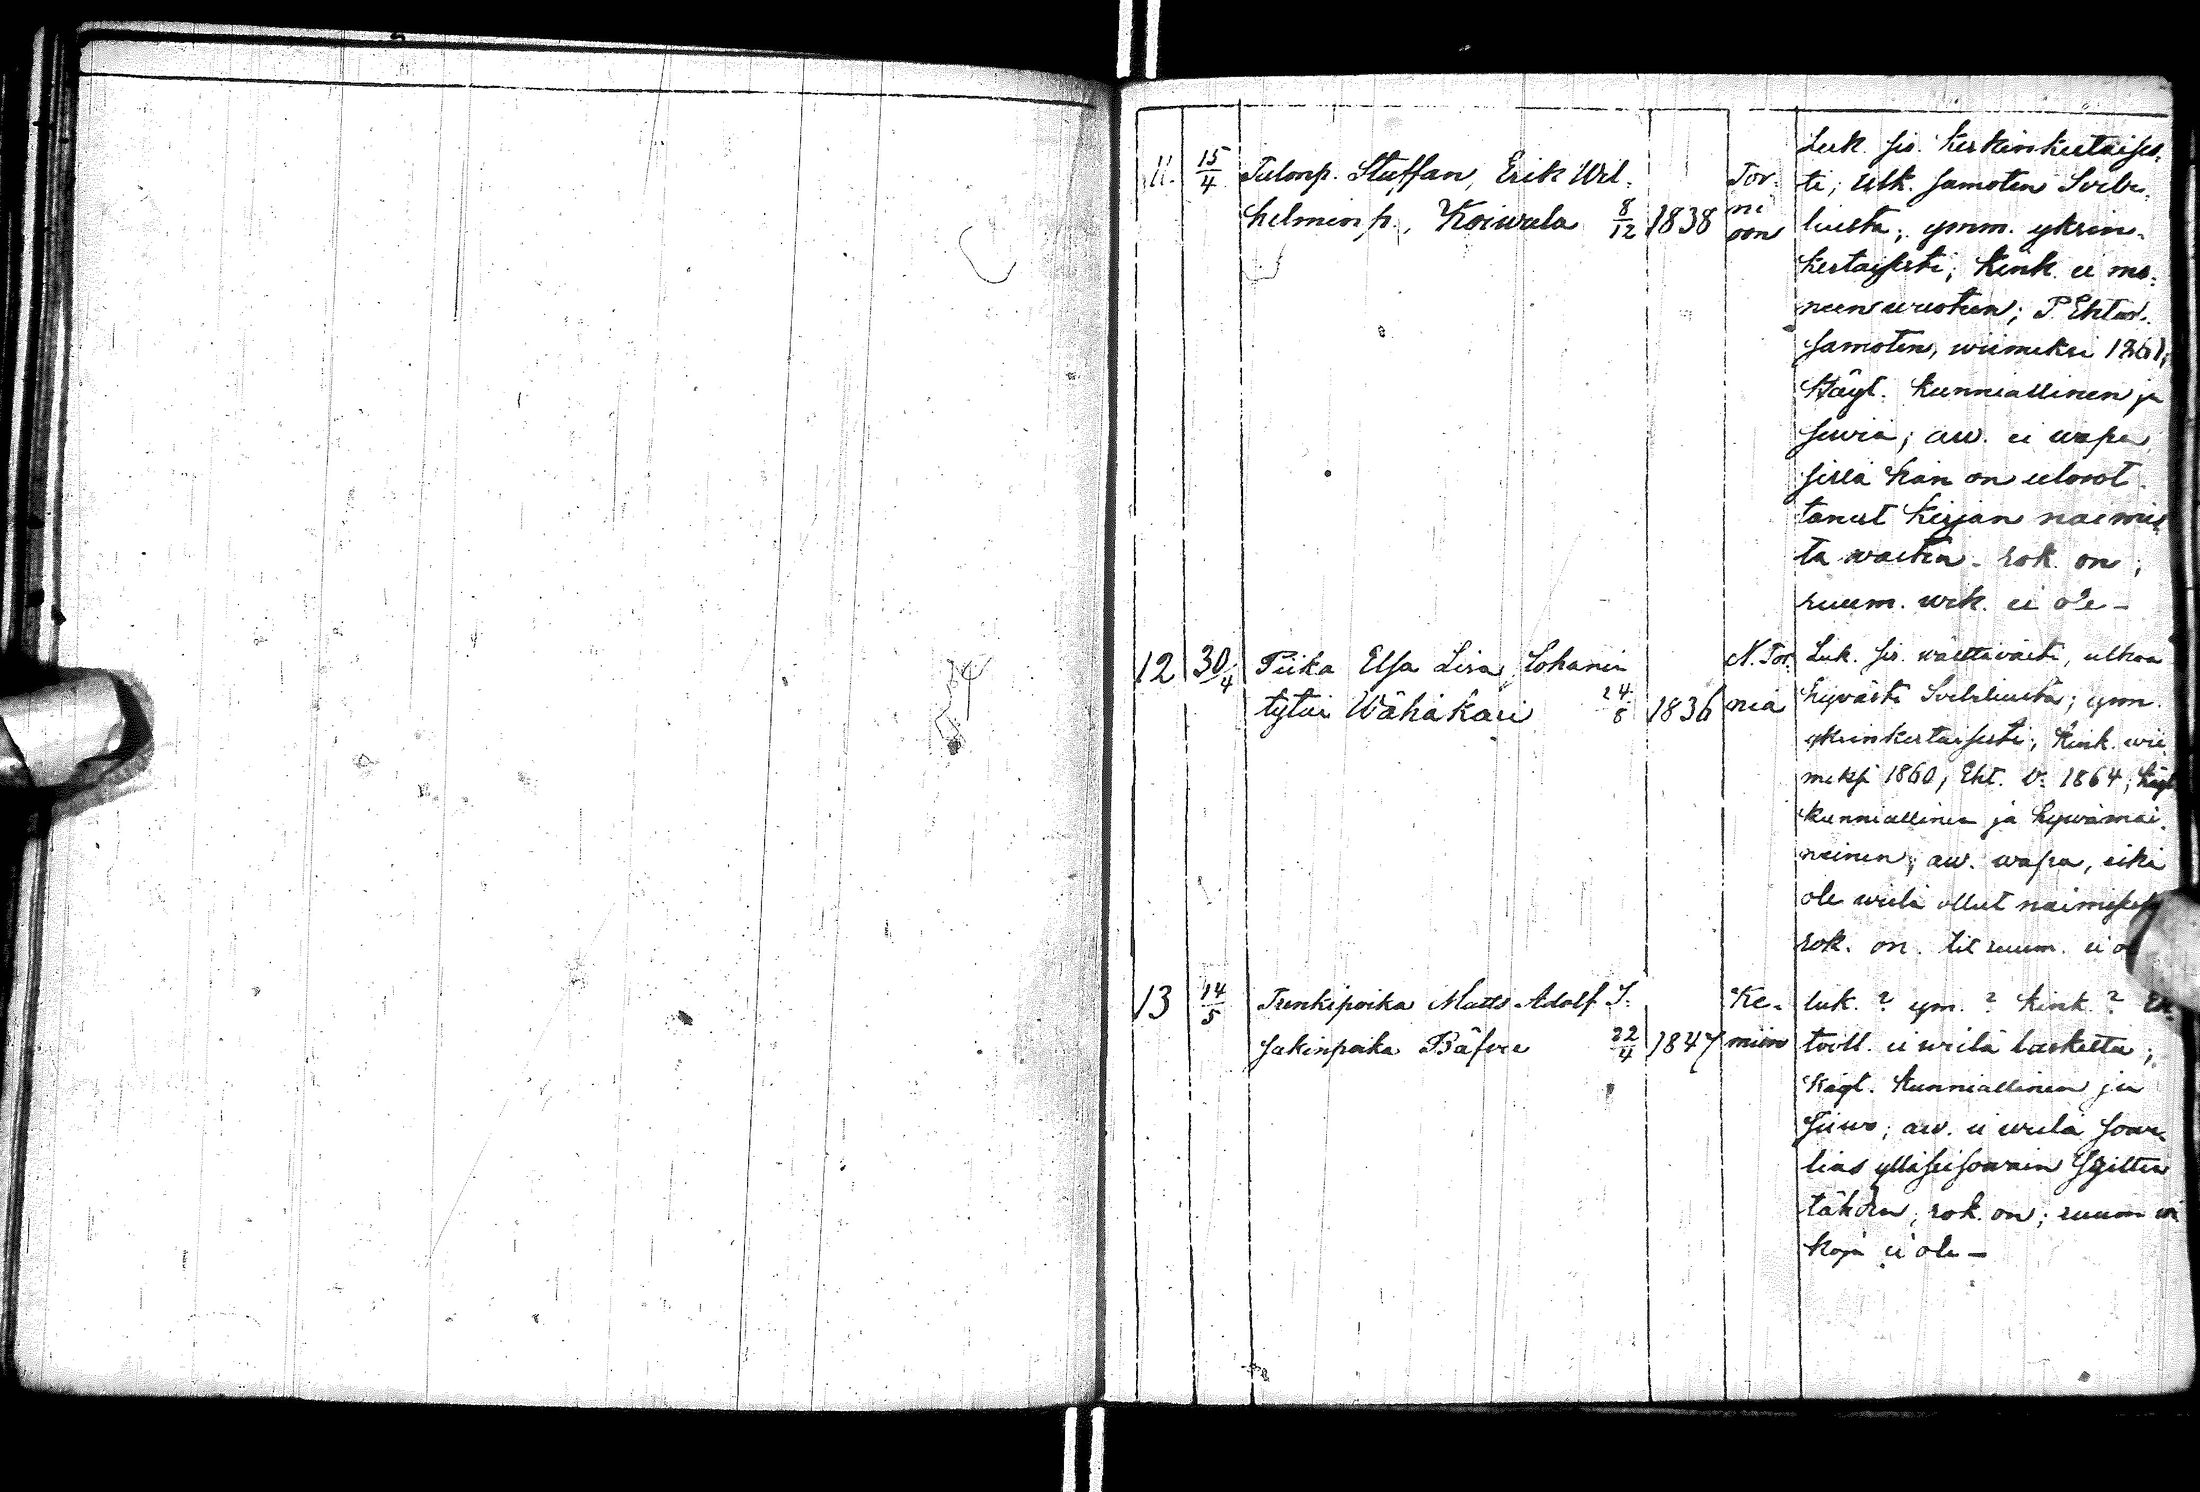 11. 15/4 Talonp. Staffan, Erik Wil-
helmin p., Koiwula 8/12 1838 Tor-
ni
oon
Luk. sis. keskinkertaises-
ti, ulk. samoten Svebi-
liusta; ymm. yksin-
kertaisesti; kink. ei mo-
neen vuoteen; P. Ehtool.
samoten, wiimeksi 1861;
Käyt. kunniallinen ja
siwiä; aw. ei wapa
sillä hän on ulosot-
tanut kirjan naimis-
ta warten. rok. on;
ruum. wik. ei ole -
12 30/4 Piika Elsa Lisa Johanin
tytär Wähäkari 24/8 1836 N. Tor-
nia
Luk. sis. wälttäwästi, ulkoa
hywästi Svebiliusta; ymm.
yksinkertaisesti; kink. wii
meksi 1860; Eht. v. 1864; käyt.
kunniallinen ja hywämai-
neinen; aw. wapa, eikä
ole wielä ollut naimisessa
rok. on. ruum. ei
13 14/5 Renkipoika Matts Adolf I-
sakinpoika Bäfve 22/4 1847 Ke-
miin
luk. ? ym. ? kink. ? Eh-
tooll. ei wielä laskettu;
Käyt. kunniallinen ja
siiwo; aw. ei wielä sowe-
lias ylläseisowain syitten
tähden, rok. on; ruum wi
koja ei ole -